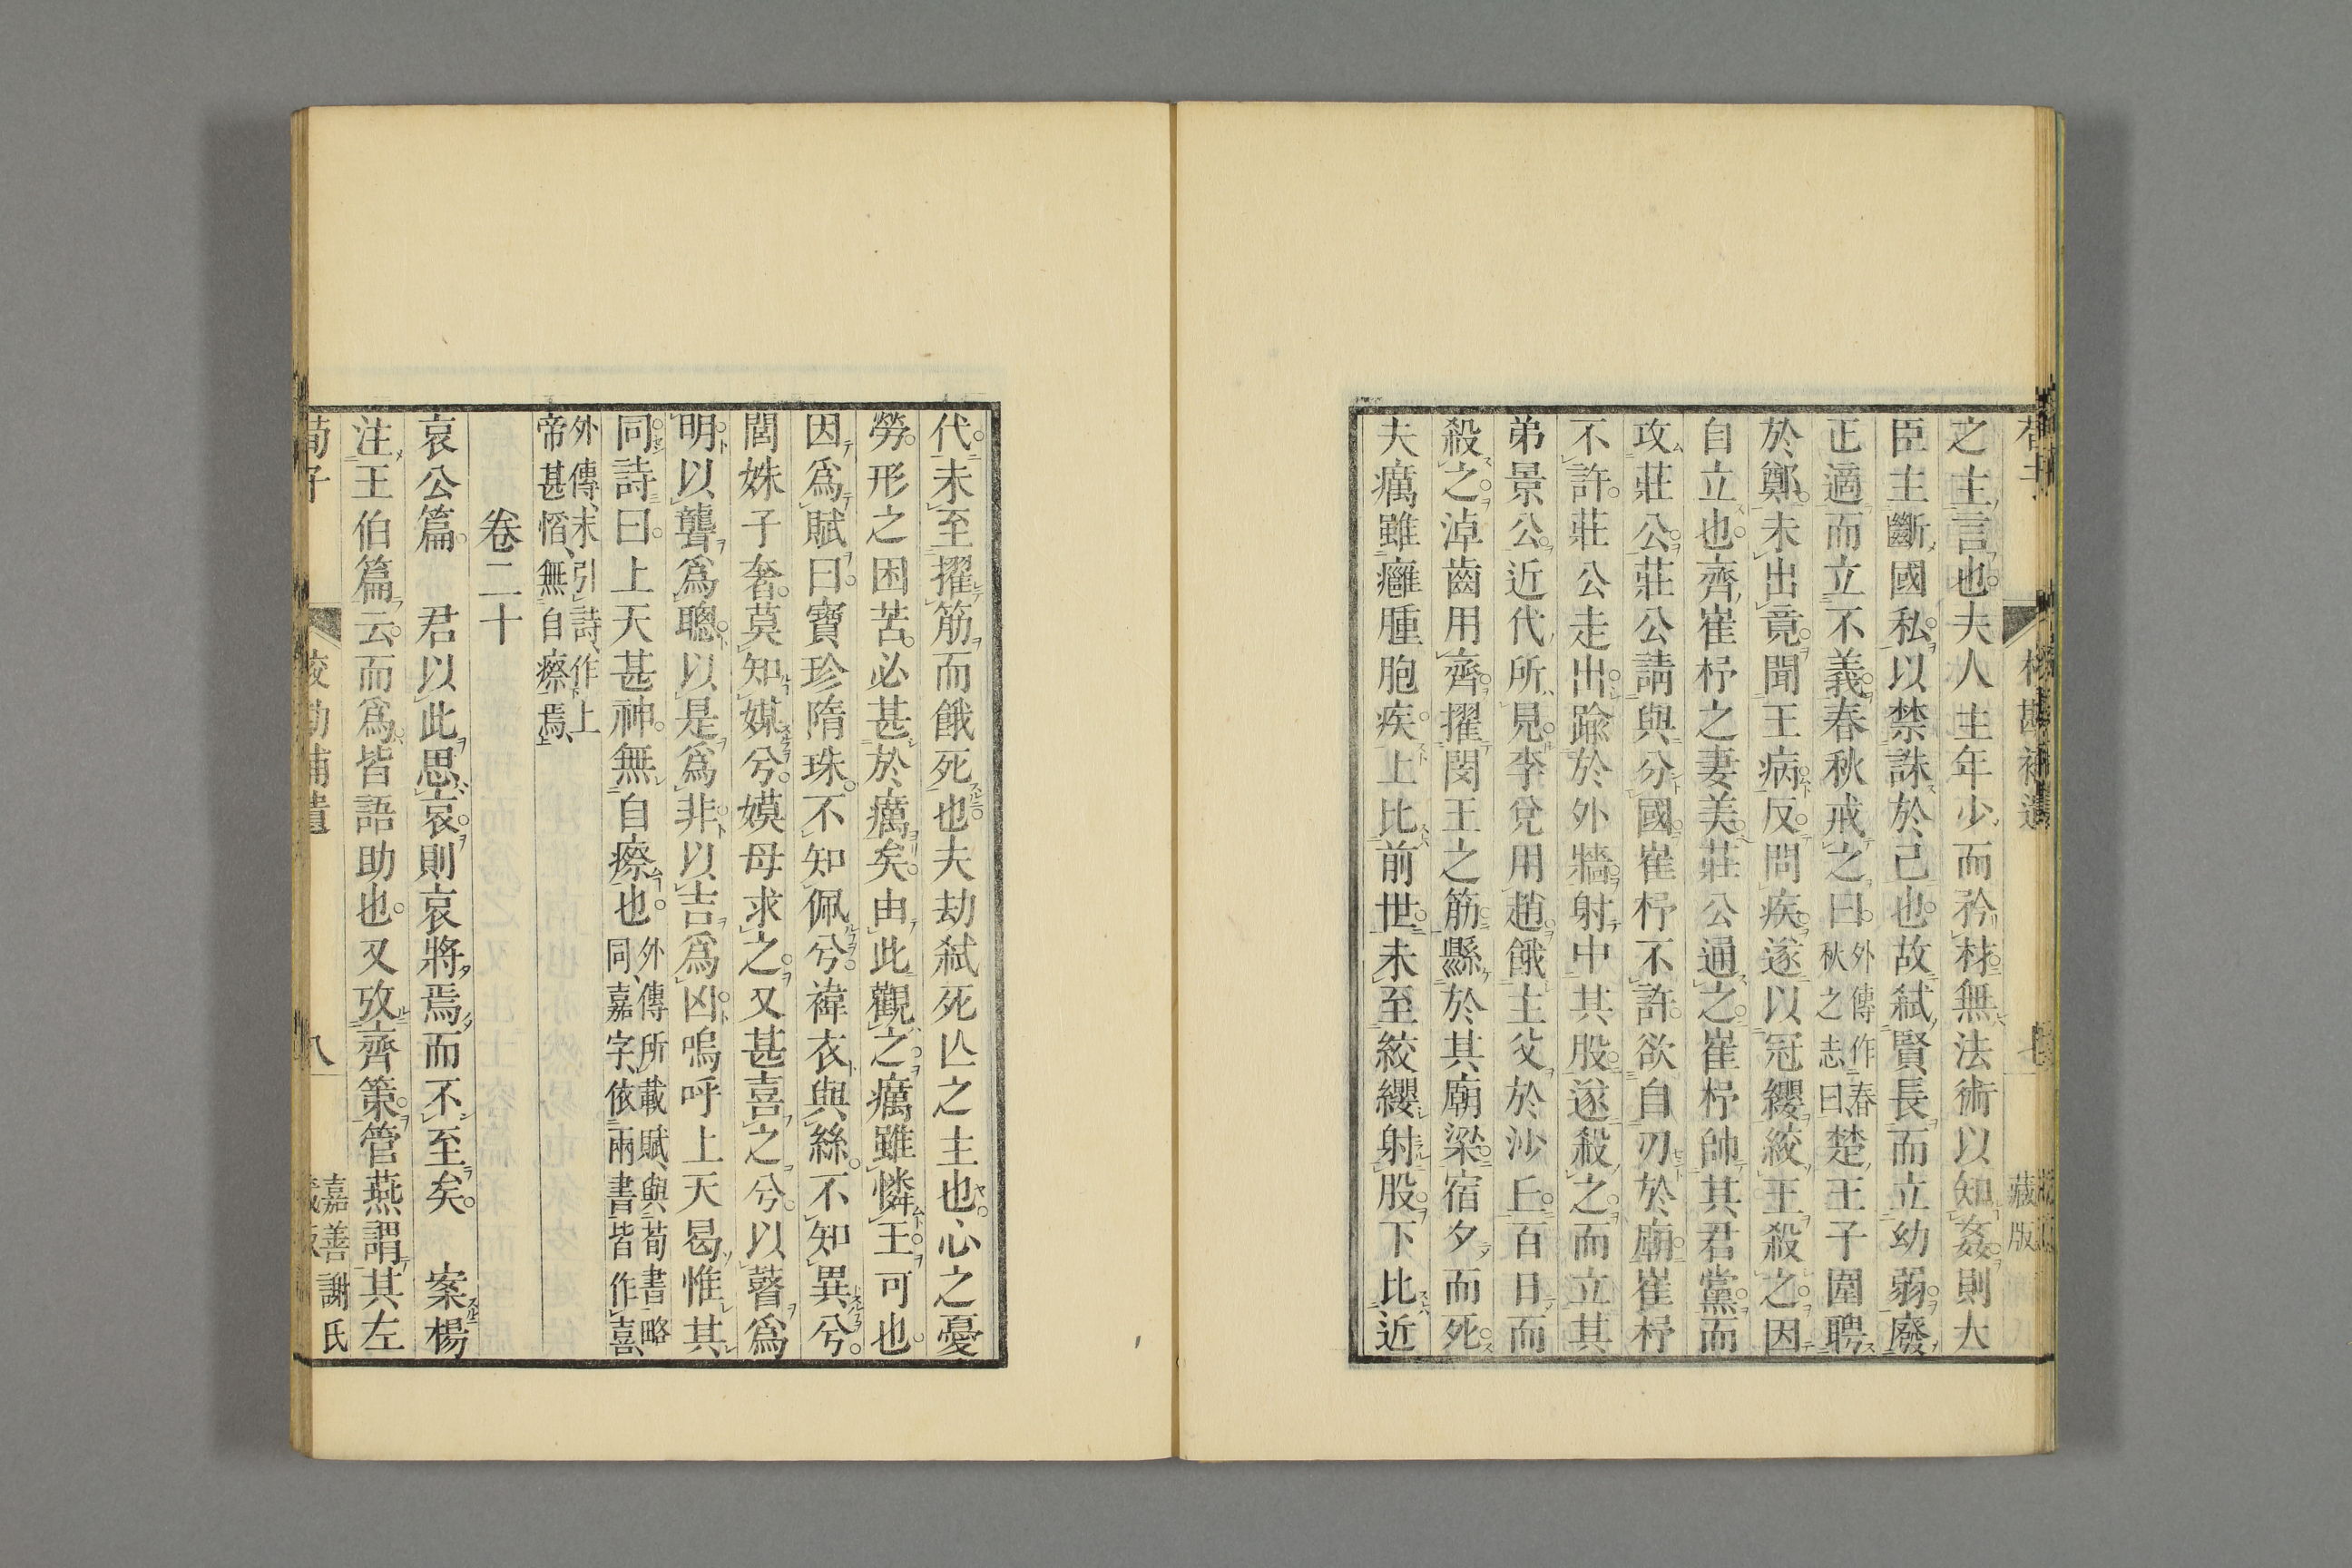 之主言也夫人主年少而矜材無法術以知姦則大
臣主斷國私以禁誅於己也故弑賢長而立幼弱廢
正適而立不義春秋戒之曰外傳作春秋之志曰楚王子圍聘
於鄭未出竟聞王病反問疾遂以冠纓絞王殺之因
自立也齊崔杼之妻美莊公通之崔杼帥其君黨而
攻莊公莊公請與分國崔杼不許欲自刃於廟崔杼
不許莊公走出踰於外牆射中其股遂殺之而立其
弟景公近代所見李兌用趙餓主父於沙丘百日而
殺之淖齒用齊擢閔王之筋縣於其廟梁宿夕而死
夫癘雖癰腫胞疾上比前世未至絞纓射股下比近
代未至擢筋而餓死也夫劫弑死亾之主也心之憂
勞形之困苦必甚於癘矣由此觀之癘雖憐王可也
因爲賦曰寶珍隋珠不知佩兮褘衣與絲不知異兮
閭姝子奢莫知媒兮嫫母求之又甚喜之兮以瞽爲
明以聾爲聰以是爲非以吉爲凶嗚呼上天曷惟其
同詩曰上天甚神無自瘵也外傳所載賦與荀書略同嘉字依兩書皆作喜
外傳末引詩作上帝甚慆無自瘵焉
卷二十
哀公篇　君以此思哀則哀將焉而不至矣　案楊
注王伯篇云而爲皆語助也又攷齊策管燕謂其左
荀子　校勘補遺　八　嘉善謝氏藏版